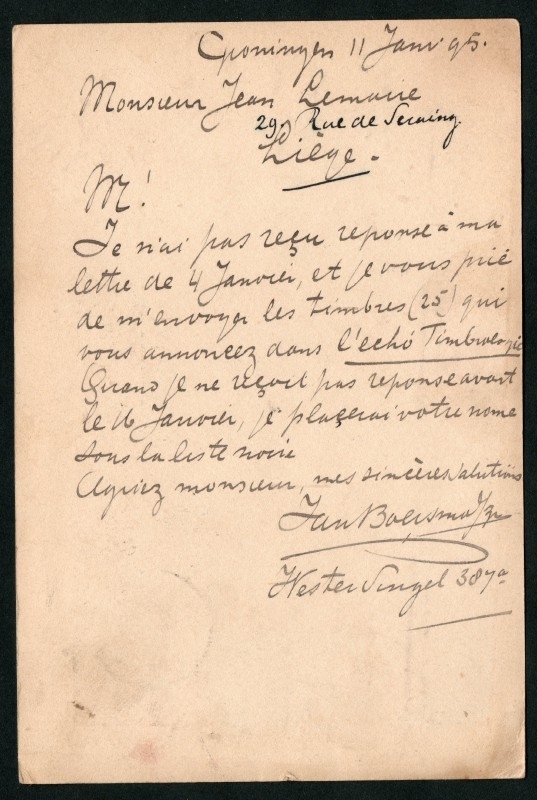 Groningen 11 Janv. 95.
Monsieur Jean Lemaire
29, Rue de Seraing
Liège.
M!
Je n'ai pas reçu reponse à ma
lettre de 4 Janvier, et je vous prié
de m'envoyer les timbres (25) qui
vous annoncez dans l'echó Timbrologie
Quand je ne reçoit pas reponse avant
le 16 Janvier, je plaçerai votre nome
sous la liste noire
Agriez monsieur, mes sincères salutions
Jan Boersma Jzn
Wester Singel 387a